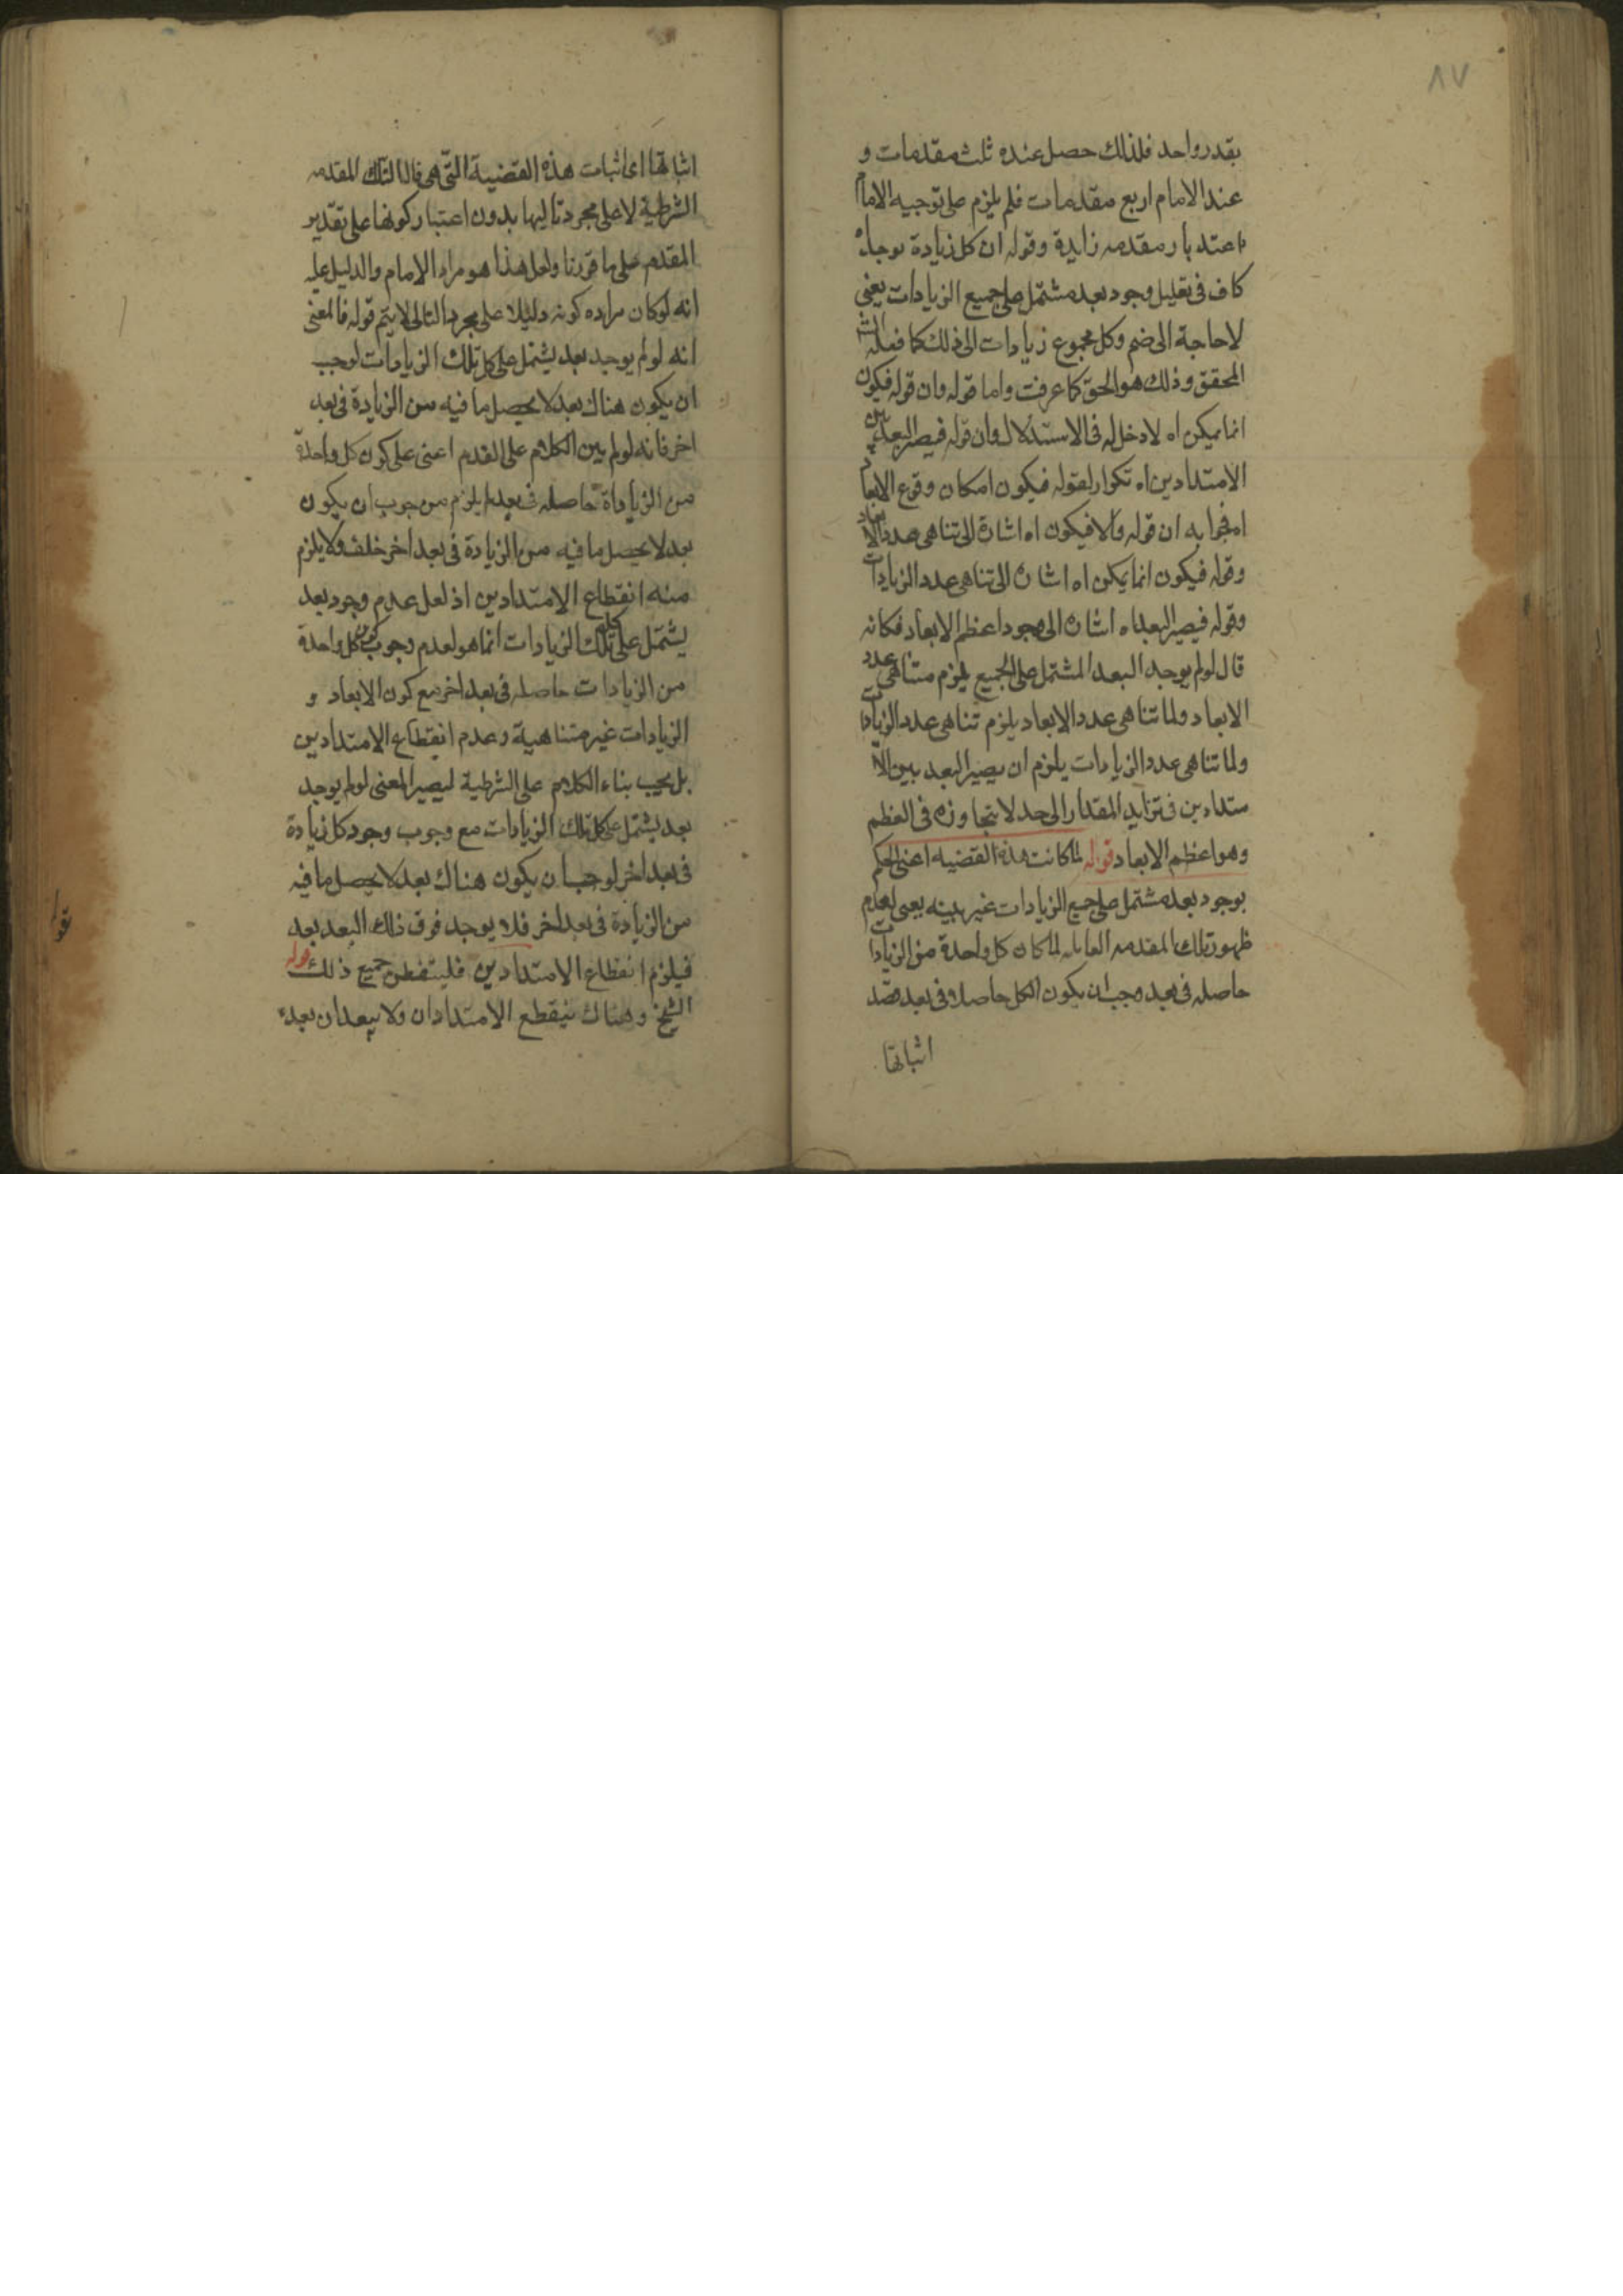 ٨٧
بقدر واحد فلذلك حصل عنده ثلث مقدمات و
عند الامام اربع مقدمات فلم يلزم على توجيه الامام
اعتبار مقدمه زايدة وقوله ان كل زيادة توجد
كاف فى تعليل وجود بعد مشتمل على جميع الزيادات يعنى
لا حاجة الى ضم وكل مجموع زيادات الى ذلك كما فعله الشارح
المحقق وذلك هو الحق كما عرفت واما قوله وان قوله فيكون
انما يمكن اه لا دخل له فى الاستدلال وان قوله فيصير البعد بين
الامتدادين اه تكرار لقوله فيكون امكان وقوع الابعاد
اه فجوابه ان قوله والا فيكون اه اشارة الى تناهى عدد الابعاد
وقوله فيكون انما يمكن اه اشارة الى تناهى عدد الزيادات
وقوله فيصير البعد اه اشارة الى وجود اعظم الابعاد فكانه
قال لو لم يوجد البعد المشتمل على الجميع يلزم تناهى عدد
الابعاد ولما تناهى عدد الابعاد يلزم تناهى عدد الزيادات
ولما تناهى عدد الزيادات يلزم ان يصير البعد بين الا
متدادين فى تزايد المقدار الى حد لا يتجاوزه فى العظم
وهو اعظم الابعاد قوله لما كانت هذه القضيه اعنى الحكم
بوجود بعد مشتمل على جميع الزيادات غير بينه يعنى لعدم
ظهور تلك المقدمه القايله لما كان كل واحدة من الزيادات
حاصله فى بعد وجب ان يكون الكل حاصلا فى بعد قصد
اثباتها
اثباتها اى اثبات هذه القضية التى هى تلك المقدمه
الشرطية لا على مجرد تاليها بدون اعتبار كونها على تقدير
المقدم على ما قررنا ولعل هذا هو مراد الامام والدليل عليه
انه لو كان مراده كونه دليلا على مجرد التالى لا يتم قوله فالمعنى
انه لو لم يوجد بعد يشتمل على كل تلك الزيادات لوجب
ان يكون هناك بعد لا يحصل ما فيه من الزيادة فى بعد
اخر فانه لو لم يبن الكلام على المقدم اعنى على كون كل واحدة
من الزيادة حاصله فى بعد لم يلزم من وجوب ان يكون
بعد لا يحصل ما فيه من الزيادة فى بعد اخر خلف ولا يلزم
منه انقطاع الامتدادين اذ لعل عدم وجود بعد
يشتمل على كل تلك الزيادات انما هو لعدم وجوب كون كل واحدة
من الزيادات حاصله فى بعد اخر مع كون الابعاد و
الزيادات غير متناهية وعدم انقطاع الامتدادين
بل يجب بناء الكلام على الشرطية ليصير المعنى لو لم يوجد
بعد يشتمل على كل تلك الزيادات مع وجوب وجود كل زيادة
فى بعد اخر لوجب ان يكون هناك بعد لا يحصل ما فيه
من الزيادة فى بعد اخر فلا يوجد فوق ذلك البعد بعد
فيلزم انقطاع الامتدادين فليتفطن جميع ذلك قوله
الشيخ وهناك ينقطع الامتدادان ولا يبعدان بعده